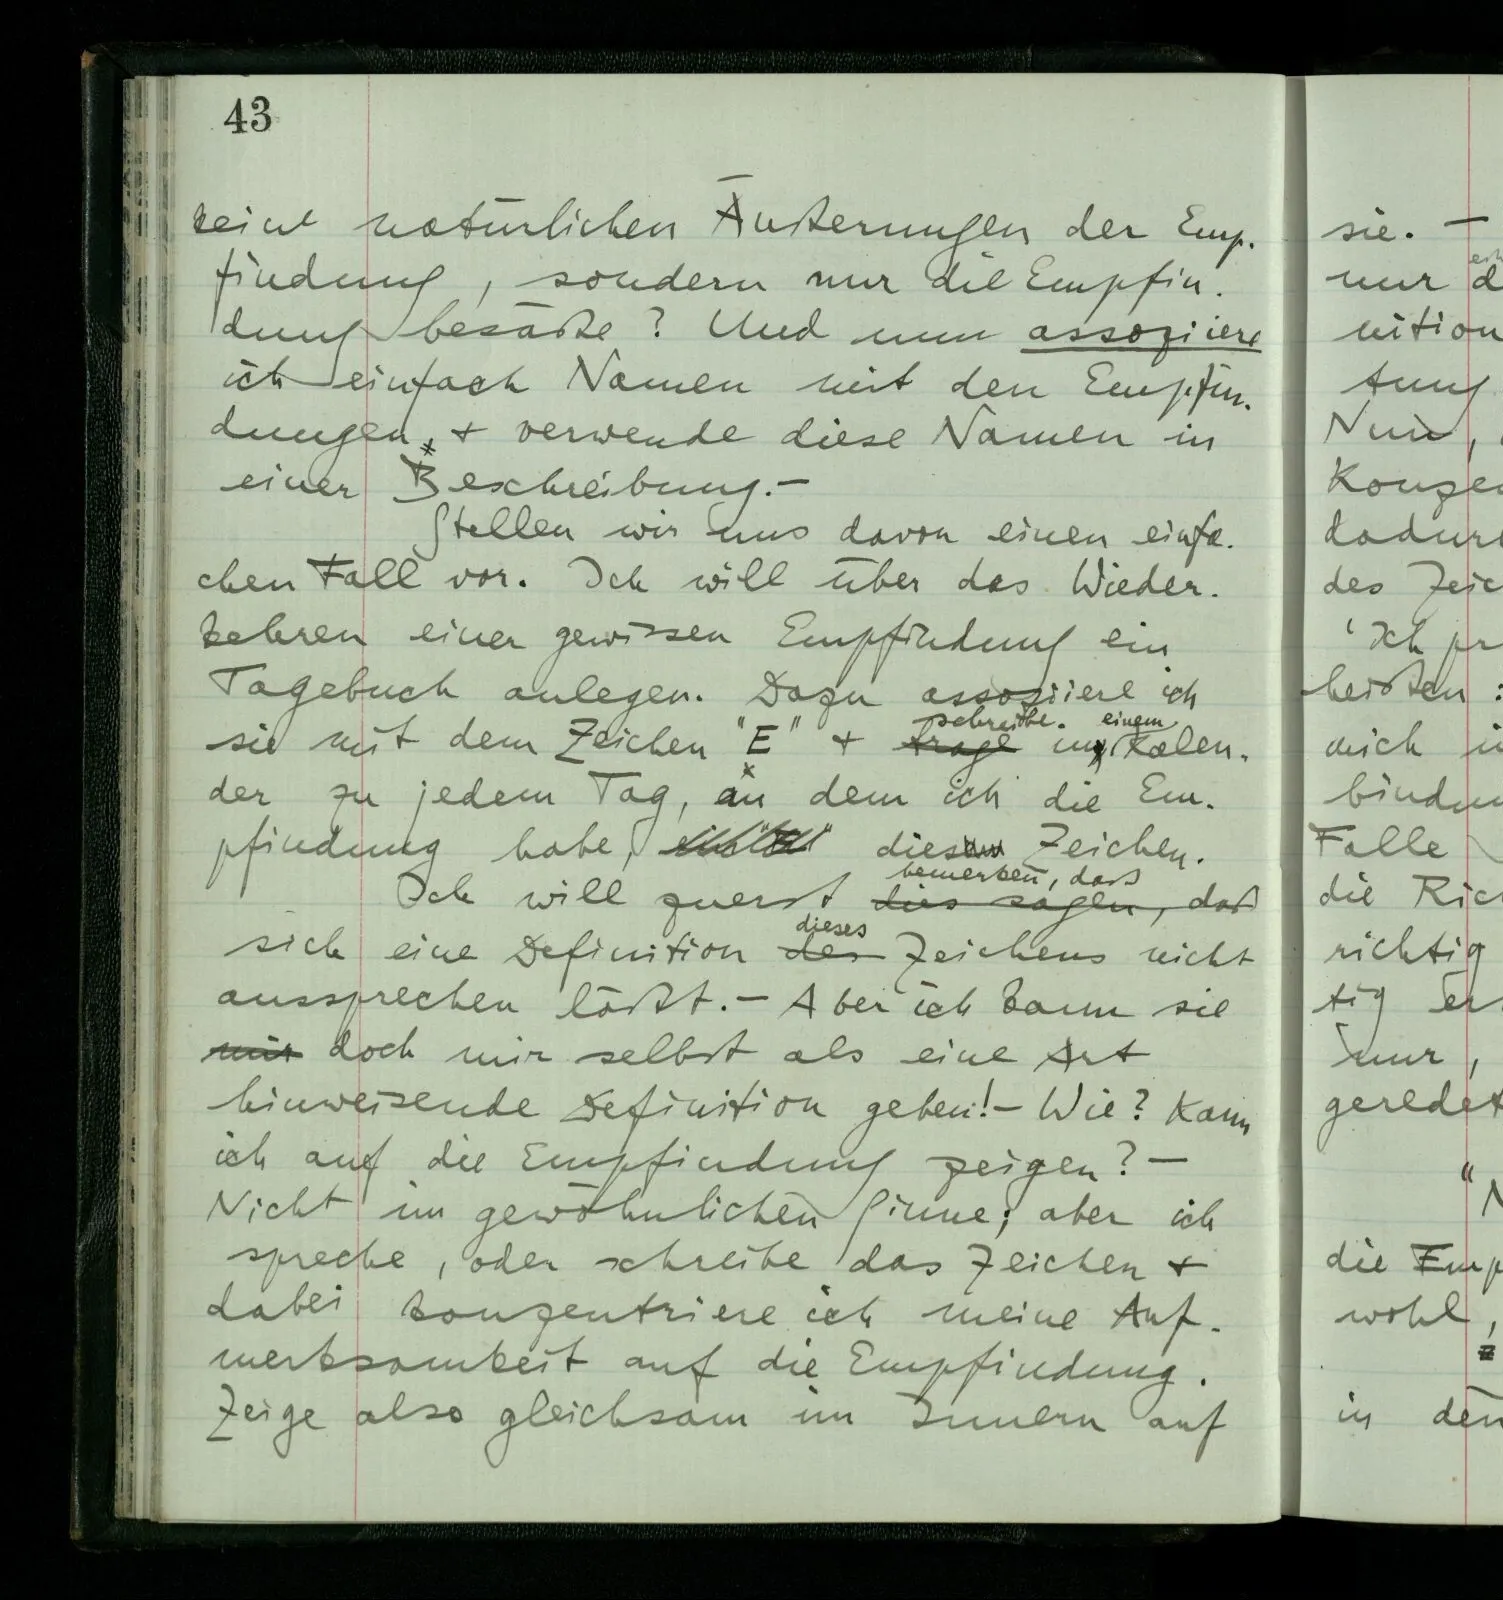 43
keine natürlichen Äußerungen der Emp-
findung, sondern nur die Empfin-
dung besäße? Und nun assoziiere
ich einfach Namen mit den Empfin-
dungen, & verwende diese Namen in
einer Beschreibung. –
Stellen wir uns davon einen einfa-
chen Fall vor. Ich will über das Wieder-
kehren einer gewissen Empfindung ein
Tagebuch anlegen. Dazu assoziiere ich
schreibe einem
sie mit dem Zeichen "E" & trage in Kalen-
der zu jedem Tag, an dem ich die Em-
pfindung habe, dieses Zeichen.
bemerken, daß
Ich will zuerst dies sagen, daß
dieses
sich eine Definition des Zeichens nicht
aussprechen läßt. – Aber ich kann sie
mir doch mir selbst als eine Art
hinweisende Definition geben! – Wie? Kann
ich auf die Empfindung zeigen? –
Nicht im gewöhnlichen Sinne; aber ich
spreche, oder schreibe das Zeichen &
dabei konzentriere ich meine Auf-
merksamkeit auf die Empfindung.
Zeige also gleichsam im Innern auf
sie. –
nur
nition
tung
Nun,
Konzen
dadurc
des Zeic
'Ich pr
heißen:
mich i
bindun
Falle
die Ric
richtig
tig
nur,
geredet
"N
die Emp
wohl,
in den